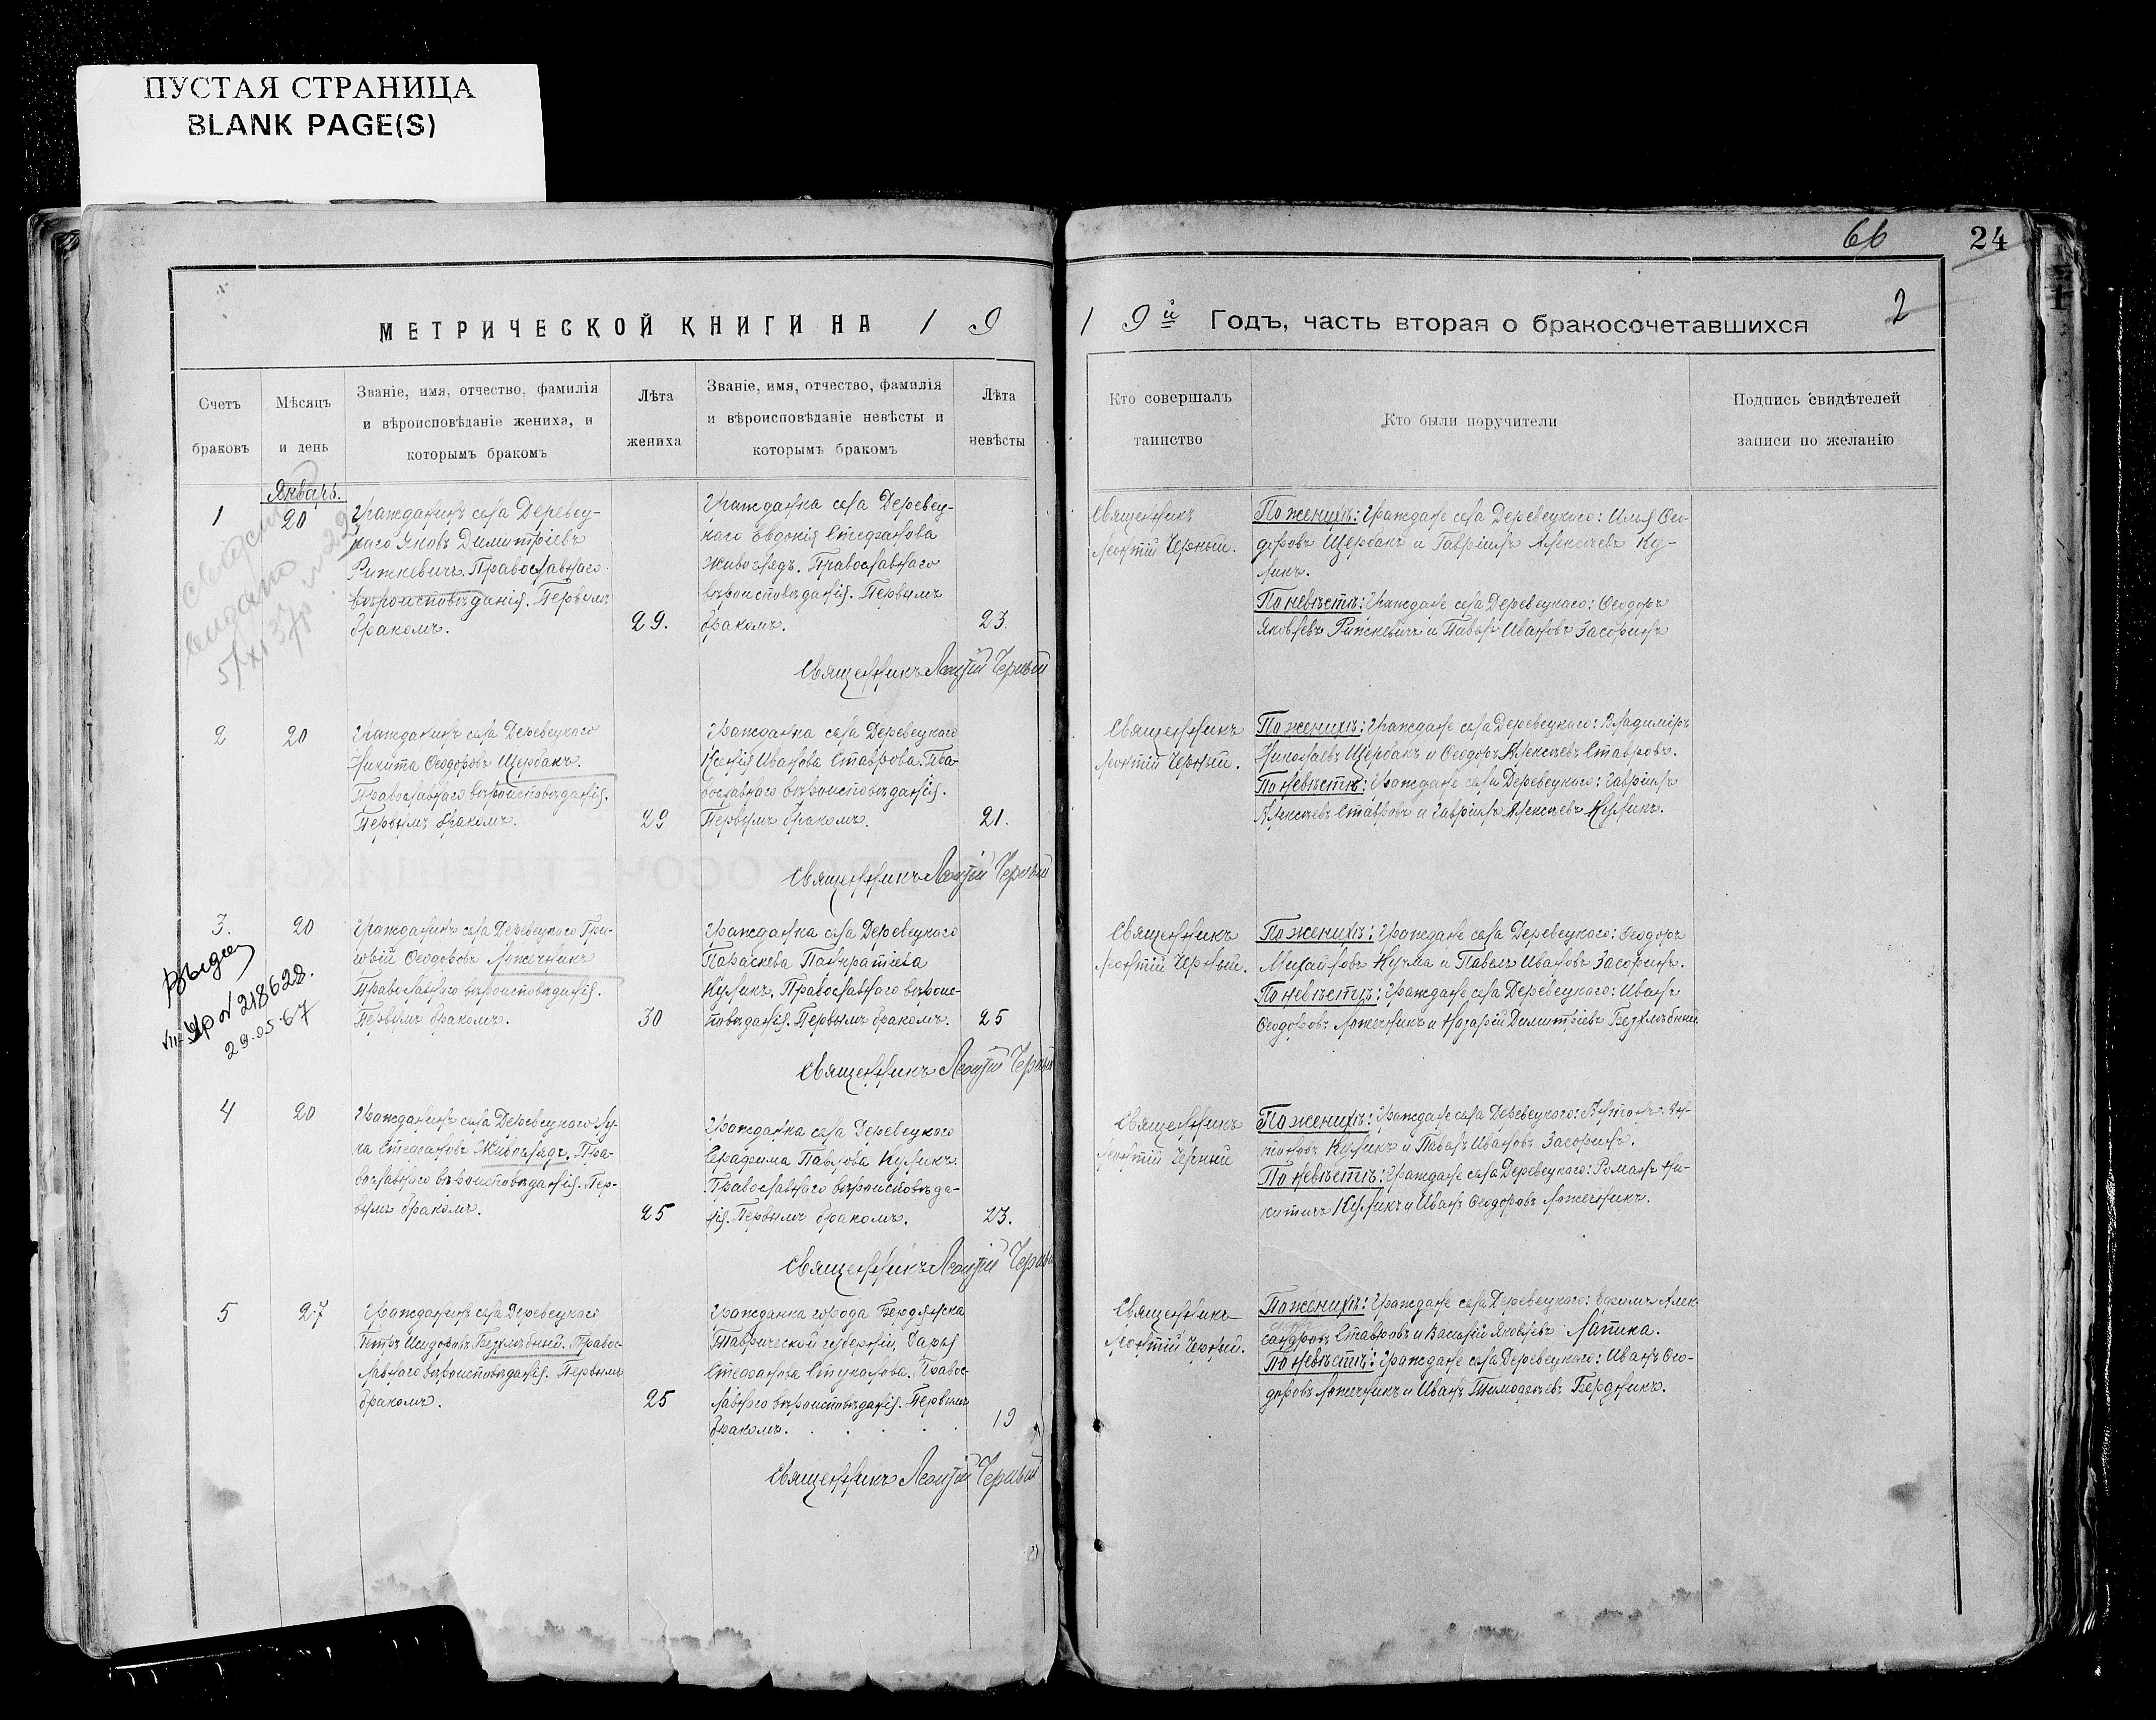 ПУСТАЯ СТРАНИЦА
BLANK PAGE(S)
МЕТРИЧЕСКОЙ КНИГИ НА 1 9
Счетъ
браковъ
Мѣсяцъ
и день
Званіе, имя, отчество, фамилія
и вѣроисповѣданіе жениха, и
которымъ бракомъ
Лѣта
жениха
Званіе, имя, отчество, фамилія
и вѣроисповѣданіе невѣсты и
которымъ бракомъ
Лѣта
невѣсты
Январь.
1
20
Гражданинъ села Деревец-
каго Яковъ Димитріевъ
Рижкевичъ. Православнаго
вѣроисповѣданія. Первымъ
бракомъ.
29.
Гражданка села Деревец-
каго Евдокія Стефанова
Живоглядъ. Православнаго
вѣроисповѣданія. Первымъ
бракомъ.
23.
Священникъ Леонтій Черный
2
20
Гражданинъ села Деревецкаго
Никита Ѳеодоровъ Щербакъ.
Православнаго вѣроисповѣданія.
Первымъ бракомъ.
29
Гражданка села Деревецкаго
Ксенія Иванова Ставрова. Пра-
вославнаго вѣроисповѣданія.
Первымъ бракомъ.
21.
Священникъ Леонтій Черный
3.
20
Выдан
№ 218628.
29.05.67
Гражданинъ села Деревецкаго Гри-
горій Ѳеодоровъ Ложечникъ
Православнаго вѣроисповѣданія.
Первымъ бракомъ.
30
Гражданка села Деревецкаго
Параскева Панкратіева
Куликъ. Православнаго вѣроис-
повѣданія. Первымъ бракомъ.
25
Священникъ Леонтій Черный
4
20
Гражданинъ села Деревецкаго Лу-
ка Стефановъ Живоглядъ. Пра-
вославнаго вѣроисповѣданія. Пер-
вымъ бракомъ.
25
Гражданка села Деревецкаго
Серафима Павлова Куликъ.
Православнаго вѣроисповѣда-
нія. Первымъ бракомъ.
23.
Священникъ Леонтій Черный
5
27
Гражданинъ села Деревецкаго
Петръ Исидоровъ Безхлѣбный. Правос-
лавнаго вѣроисповѣданія. Первымъ
бракомъ.
25
Гражданка города Бердянска
Таврической губерніи, Дарья
Стефанова Стукалова. Правос-
лавнаго вѣроисповѣданія. Первымъ
бракомъ. . . . . .
19
Священникъ Леонтій Черный
66
24
1 9 й Годъ, часть вторая о бракосочетавшихся
2
Кто совершалъ
таинство
Кто были поручители
Подпись свидѣтелей
записи по желанію
Священникъ
Леонтій Черный.
По женихѣ: Граждане села Деревецкаго: Илья Ѳео-
доровъ Щербакъ и Гавріилъ Алексѣевъ Ку-
ликъ.
По невѣстѣ: Граждане села Деревецкаго: Ѳеодоръ
Яковлевъ Рижкевичъ и Павелъ Ивановъ Засоринъ
Священникъ
Леонтій Черный.
По женихѣ: Граждане села Деревецкаго: Владиміръ
Николаевъ Щербакъ и Ѳеодоръ Алексѣевъ Ставровъ.
По невѣстѣ: Граждане села Деревецкаго: Гавріилъ
Алексѣевъ Ставровъ и Гавріилъ Алексѣевъ Куликъ.
Священникъ
Леонтій Черный.
По женихѣ: Граждане села Деревецкаго: Ѳеодоръ
Михайловъ Кучма и Павелъ Ивановъ Засоринъ.
По невѣстѣ: Граждане села Деревецкаго: Иванъ
Ѳеодоровъ Ложечникъ и Назарій Димитріевъ Безхлѣбный.
Священникъ
Леонтій Черный
По женихѣ: Граждане села Деревецкаго: Антонъ Ан-
тоновъ Куликъ и Павелъ Ивановъ Засоринъ.
По невѣстѣ: Граждане села Деревецкаго: Романъ Ни-
китичъ Куликъ и Иванъ Ѳеодоровъ Ложечникъ.
Священникъ
Леонтій Черный.
По женихѣ: Граждане села Деревецкаго: Алек-
сандровъ Ставровъ и Василій Яковлевъ Лапика.
По невѣстѣ: Граждане села Деревецкаго: Иванъ Ѳео-
доровъ Ложечникъ и Иванъ Тимофеевъ Бердникъ.